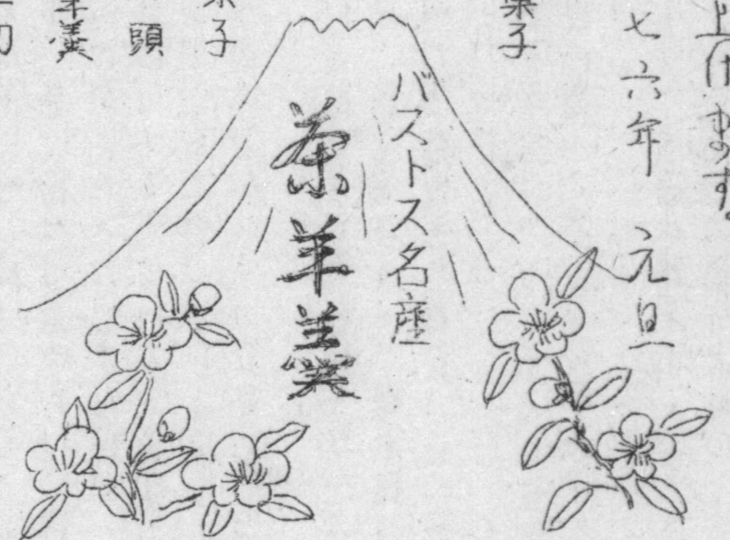 上げます。
七六年 元旦
菓子
バストス名産
茶羊羹
菓子
頭
羊羹
切